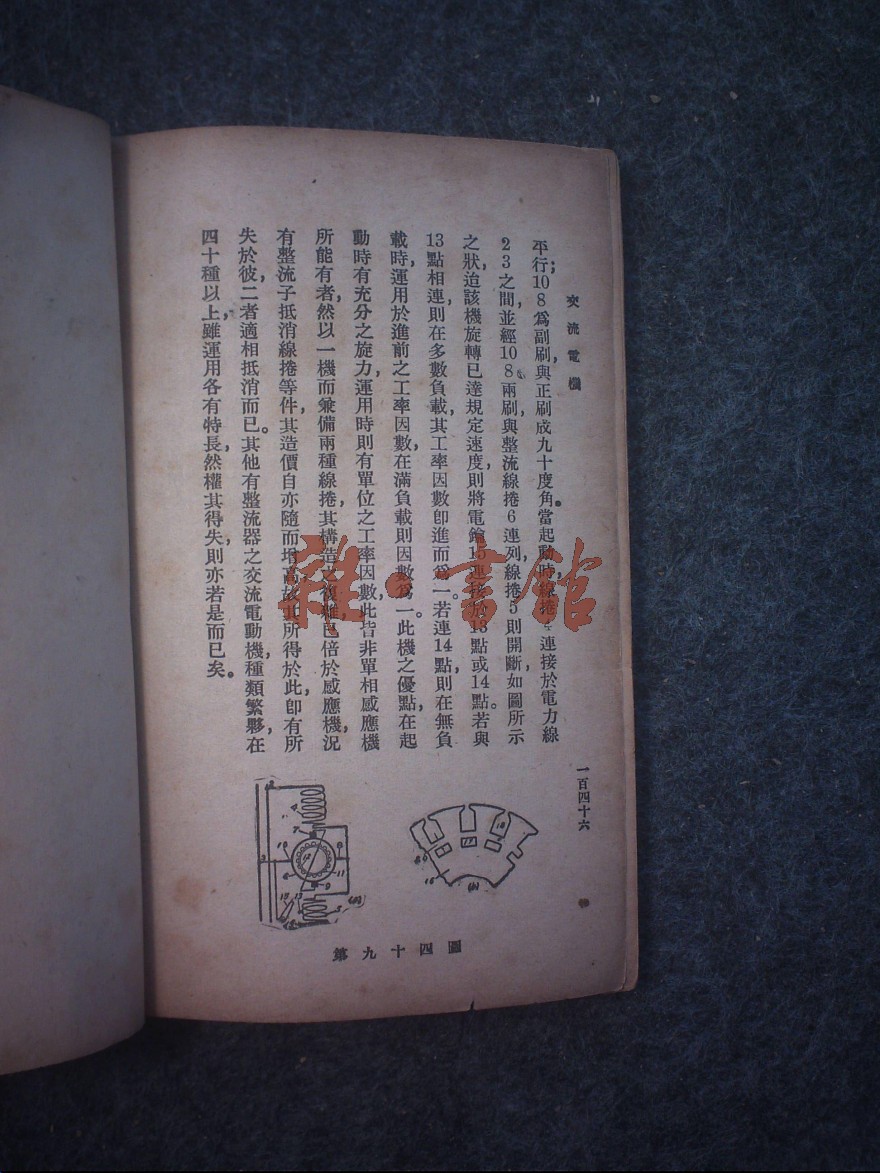 交流電機
一百四十六
平行;108為副刷,與正刷成九十度角。當起動時,線捲4連接於電力線
23之間,並經108兩刷與整流線捲6連列,線捲5則開斷,如圖所示
之狀,迨該機旋轉已達規定速度,則將電鑰15連接於13點或14點。若與
13點相連,則在多數負載,其工率因數卽進而為一。若連14點,則在無負
載時,運用於進前之工率因數,在滿負載則因數為一。此機之優點在起
動時有充分之旋力,運用時則有單位之工率因數,此皆非單相感應機
所能有者,然以一機而兼備兩種線捲,其構造之複雜已倍於感應機,況
有整流子抵消線捲等件,其造價自亦隨而增高,故其所得於此,卽有所
失於彼,二者適相抵消而已。其他有整流器之交流電動機,種類繁夥,在
四十種以上,雖運用各有特長,然權其得失,則亦若是而已矣。
第九十四圖
雜·書館